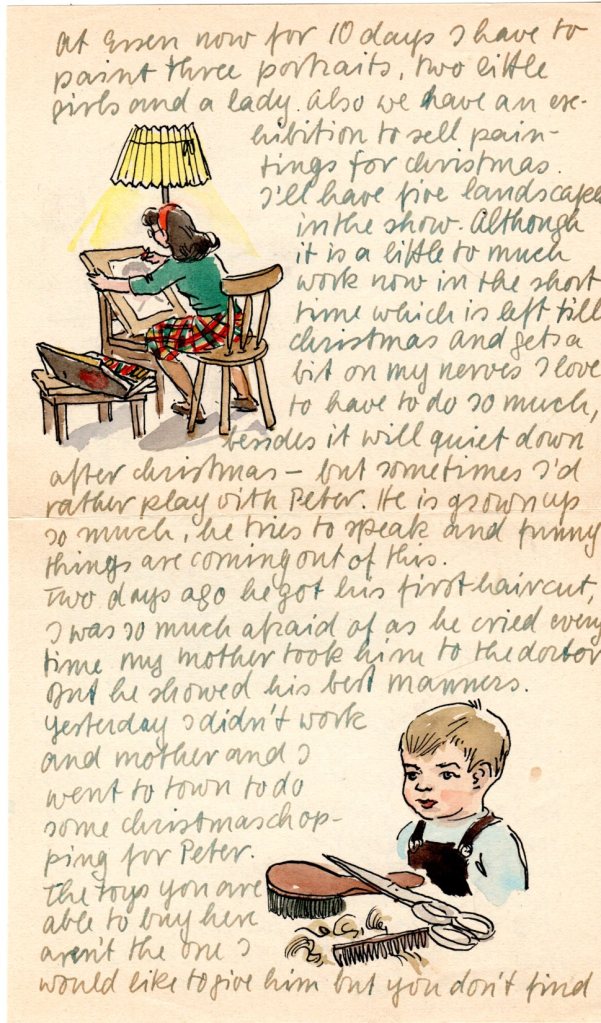 At Essen now for 10 days I have to
paint three portraits, two little
girls and a lady. Also we have an ex-
hibition to sell pain-
tings for christmas.
I'll have five landscapes
in the show. Although
it is a little to much
work now in the short
time which is left till
christmas and gets a
bit on my nerves I love
to have to do so much,
besides it will quiet down
after christmas – but sometimes I'd
rather play with Peter. He is grown up
so much, he tries to speak and funny
things are coming out of this.
Two days ago he got his first haircut,
I was so much afraid of as he cried every
time my mother took him to the doctor
But he showed his best manners.
Yesterday I didn't work
and mother and I
went to town to do
some christmaschop-
ping for Peter.
The toys you are
able to buy here
aren't the one I
would like to give him but you don't find